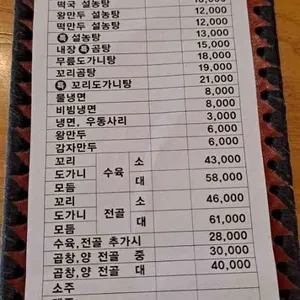 떡국 설농탕
왕만두 설농탕 12,000
떡만두 설농탕 12,000
특 설농탕 13,000
내장 특 곰탕 15,000
무릎도가니탕 18,000
꼬리곰탕 19,000
특 꼬리도가니탕 21,000
물냉면 8,000
비빔냉면 8,000
냉면, 우동사리 3,000
왕만두 6,000
감자만두 6,000
꼬리 도가니 모듬 수육 소 43,000
대 58,000
꼬리 도가니 모듬 전골 소 46,000
대 61,000
수육,전골 추가시 28,000
곱창,양 전골 중 30,000
곱창,양 전골 대 40,000
소주